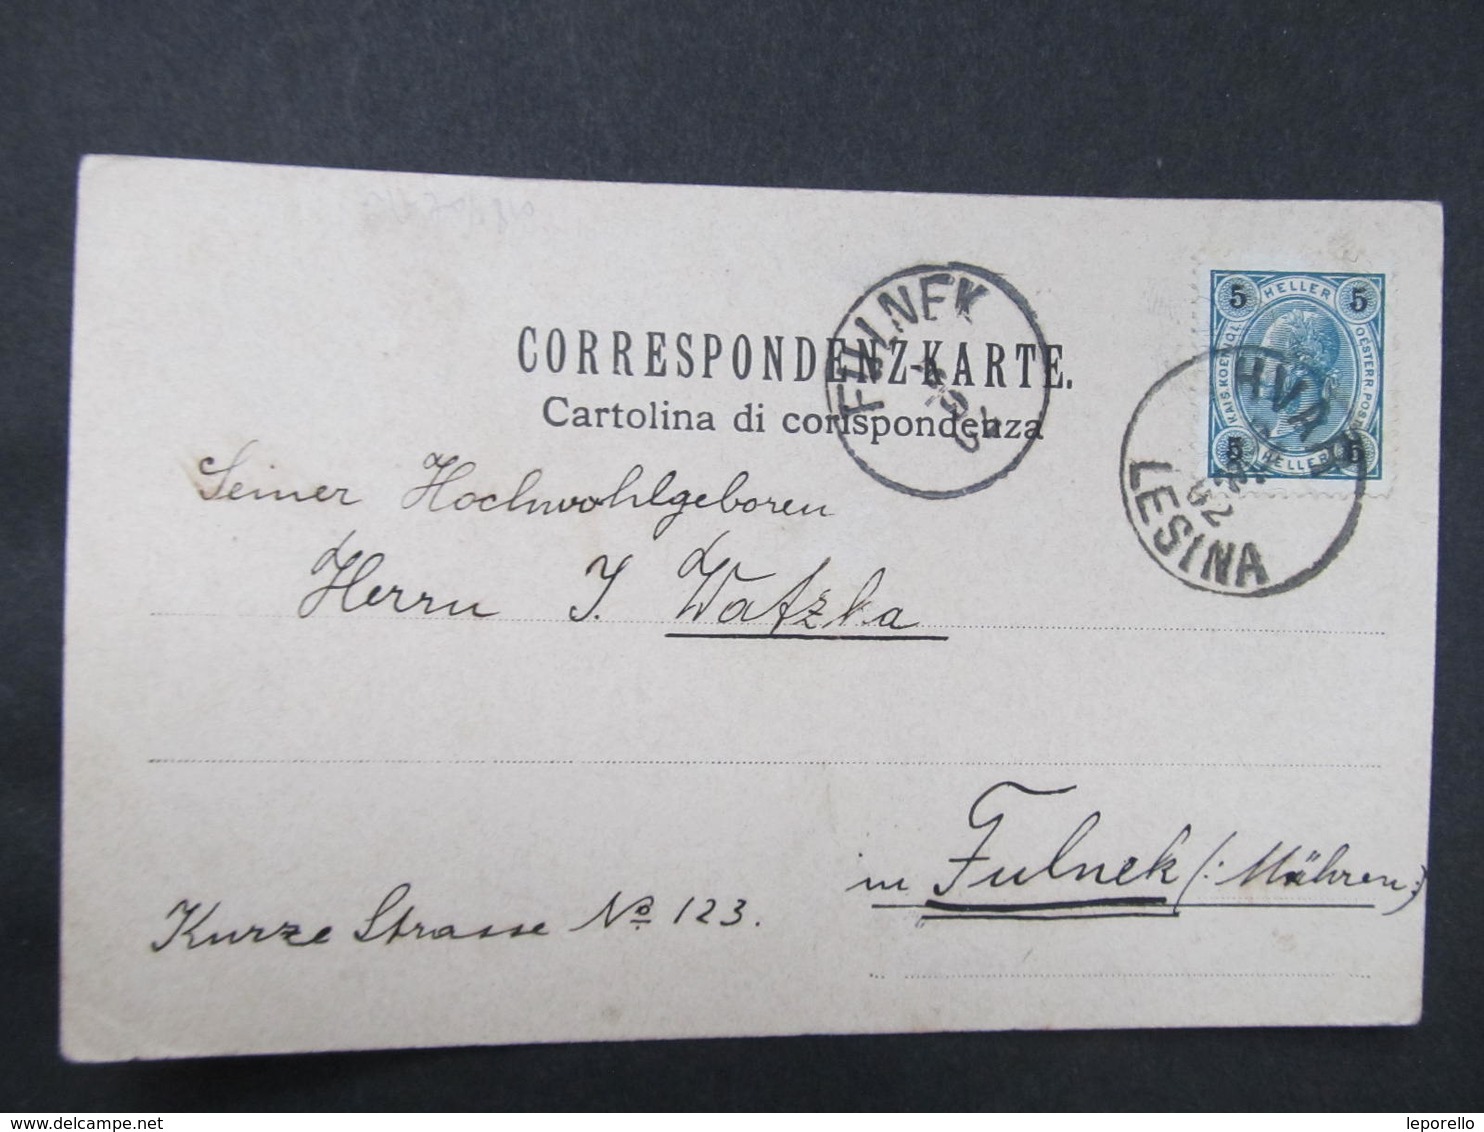 CORRESPONDENZ-KARTE.
Cartolina di corispondenza
FULNEK
5 HELLER 5
KAIS. KOENIGL.
OESTERR. POST
5 HELLER 5
HVAR
02
LESINA
Seiner Hochwohlgeboren
Herrn J. Watzka
in Fulnek (: Mähren :)
Kurze Strasse No 123.
leporello